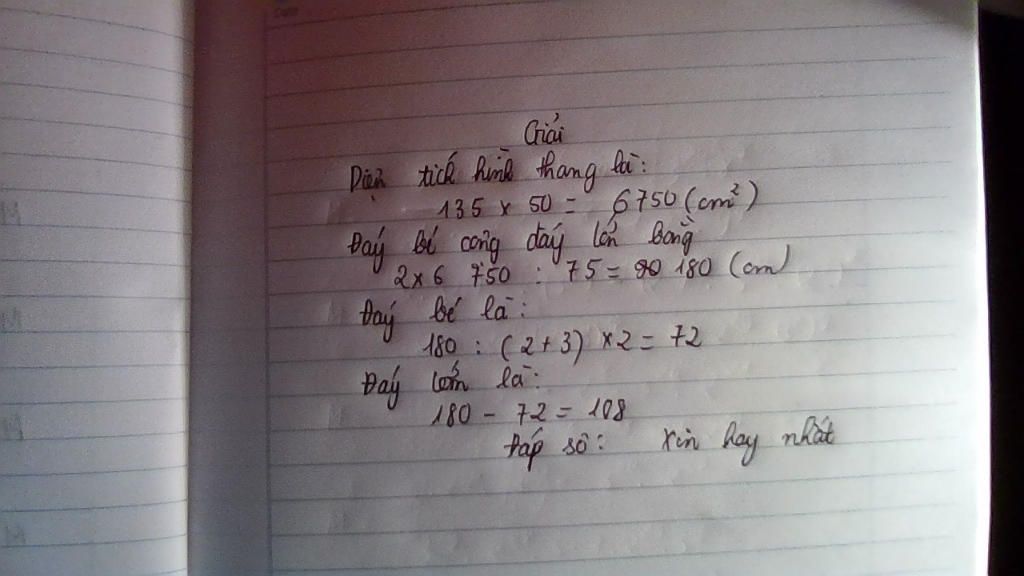 Giải
Diện tích hình thang là:
135 x 50 = 6750 (cm²)
Đáy bé cộng đáy lớn bằng
2 x 6 750 : 75 = 180 (cm)
Đáy bé là:
180 : (2 + 3) x 2 = 72
Đáy lớn là:
180 - 72 = 108
Đáp số: xin hay nhất